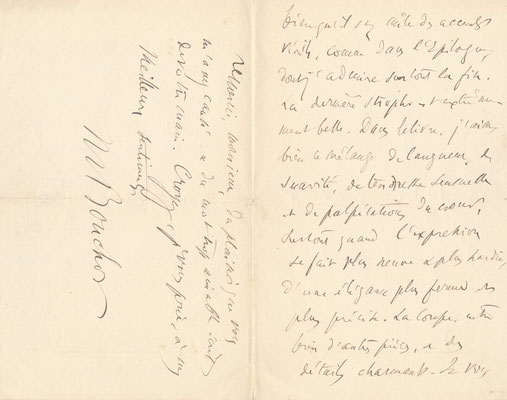 bien qu'il soit mêlé des accents
virils, comme dans l'Epilogue,
dont j'admire surtout la fin.
La dernière strophe est extrême-
ment belle. Dans le livre, j'aime
bien ce mélange de langueur, de
suavité, de tendresse sensuelle
et de palpitations du cœur,
surtout quand l'expression
se fait plus neuve et plus hardie,
d'une élégance plus ferme et
plus précise. La Coupe, entre
bien d'autres pièces, a des
détails charmants. Je vous
remercie, monsieur, du plaisir que vous
m'avez causé et du mot trop aimable
de votre main. Croyez, je vous prie, à mes
meilleurs sentiments.
M Bouchor